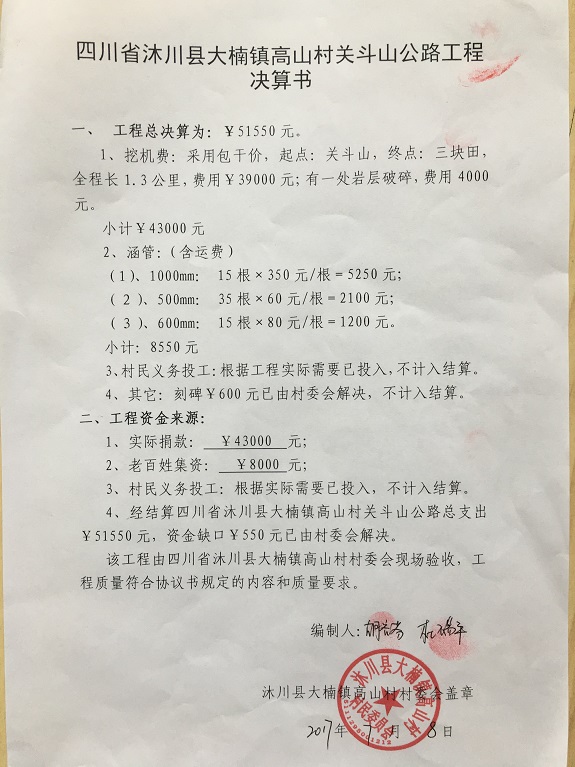 四川省沐川县大楠镇高山村关斗山公路工程
决算书
一、 工程总决算为：￥51550 元。
1、挖机费：采用包干价，起点：关斗山，终点：三块田，
全程长 1.3 公里，费用￥39000 元；有一处岩层破碎，费用 4000
元。
小计￥43000 元
2、涵管：（含运费）
（1）、1000mm： 15 根×350 元/根＝5250 元；
（2）、500mm： 35 根×60 元/根＝2100 元；
（3）、600mm： 15 根×80 元/根＝1200 元。
小计：8550 元
3、村民义务投工：根据工程实际需要已投入，不计入结算。
4、其它：刻碑￥600 元已由村委会解决，不计入结算。
二、工程资金来源：
1、实际捐款： ￥43000 元；
2、老百姓集资： ￥8000 元；
3、村民义务投工：根据实际需要已投入，不计入结算。
4、经结算四川省沐川县大楠镇高山村关斗山公路总支出
￥51550 元，资金缺口￥550 元已由村委会解决。
该工程由四川省沐川县大楠镇高山村村委会现场验收，工
程质量符合协议书规定的内容和质量要求。
编制人：
沐川县大楠镇高山村村委会盖章
沐川县大楠镇高山村
村民委员会
2017年 7月 8日